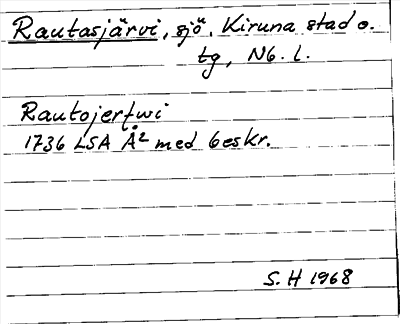 Rautasjärvi, sjö, Kiruna stad o.
tg, Nb. l.
Rautojerfwi
1736 LSA Å2 med beskr.
S. H 1968